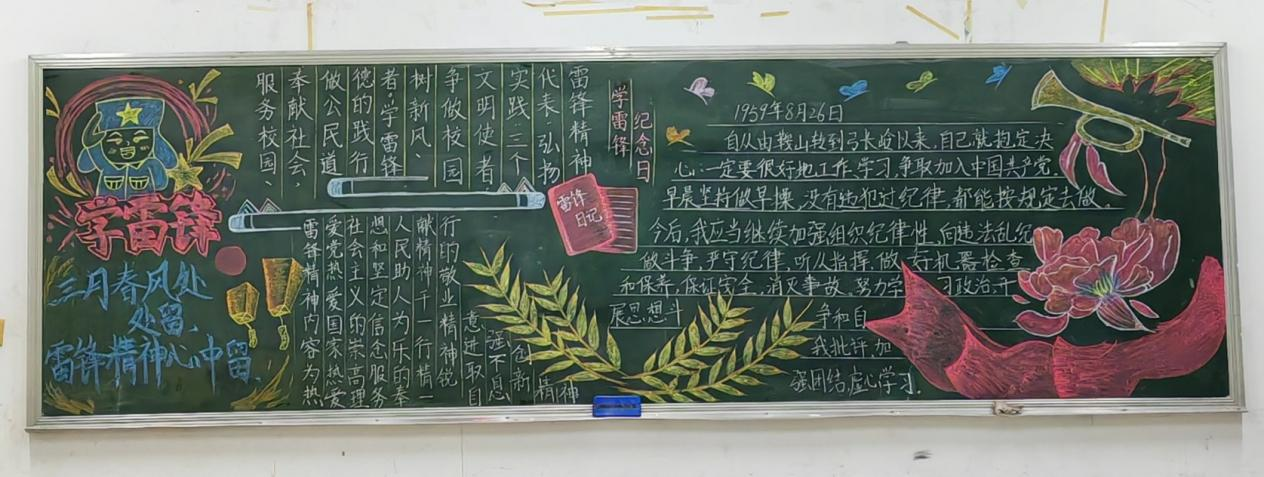 学雷锋
三月春风处
处留,
雷锋精神心中留.
服务校园、
奉献社会,
做公民道
德的践行
者学雷锋
树新风、
争做校园
文明使者
实践三个
代表、弘扬
雷锋精神
雷锋精神内容为热
爱党热爱国家热爱
社会主义的崇高理
想和坚定信念服务
人民助人为乐的奉
献精神干一行精一
行的敬业精神锐
意进取自
强不息
创新
精神
学雷锋
纪念日
雷锋
日记
1959年8月26日
自从由鞍山转到弓长岭以来,自己就抱定决
心:一定要很好地工作,学习,争取加入中国共产党.
早晨坚持做早操,没有违犯过纪律,都能按规定去做.
今后,我应当继续加强组织纪律性,向违法乱纪
做斗争,严守纪律,听从指挥,做好机器检查
和保养,保证安全,消灭事故,努力学习政治,开
展思想斗争和自
我批评,加
强团结,虚心学习.